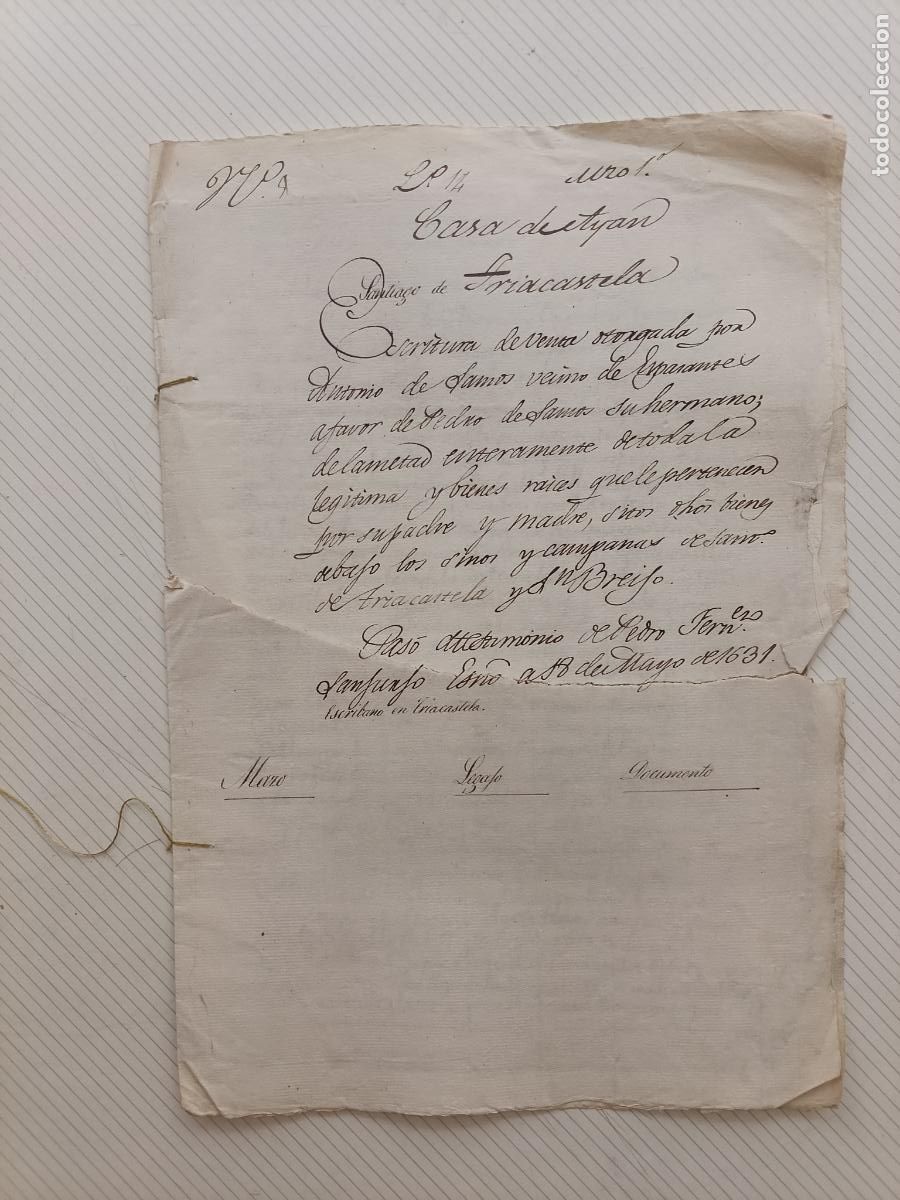 Nº. 8 Lº. 14 Mzo 1º.
Casa de Ayan
Santiago de Triacastela
Escritura de venta otorgada por
Antonio de Samos vecino de Esparantes
a favor de Pedro de Samos su hermano;
de la metad enteramente de toda la
legitima y bienes raices que le pertenecen
por su padre y madre, sitos dhōs bienes
debajo los sinos y campanas de Sanº.
de Triacastela y Sn Breijo.
Pasó Attetimonio de Pedro Fernez.
Sanjurjo Esno a 18 de Mayo de 1631.
Escribano en Triacastela.
Mazo Legajo Documento
todocoleccion